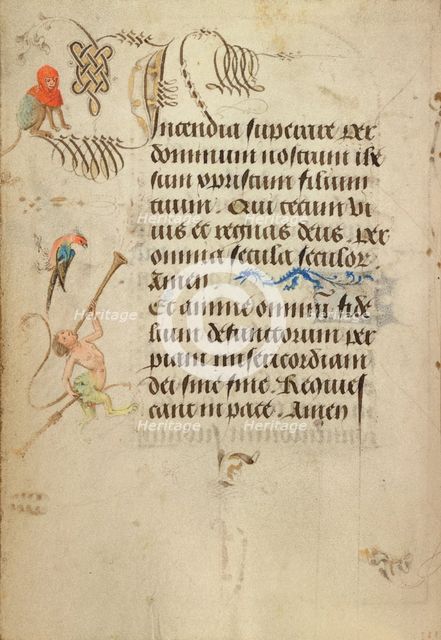 Incendia superare per
dominum nostrum ihe
sum xpristum filium
tuum. Qui tecum vi
uis et regnas deus. per
omnia secula seculor
Amen
Et anime omnium fide
lium defunctorum per
piam misericordiam
dei sine fine. Reques
cant in pace. Amen
Heritage Images
Heritage Images
Heritage Images
Heritage Images